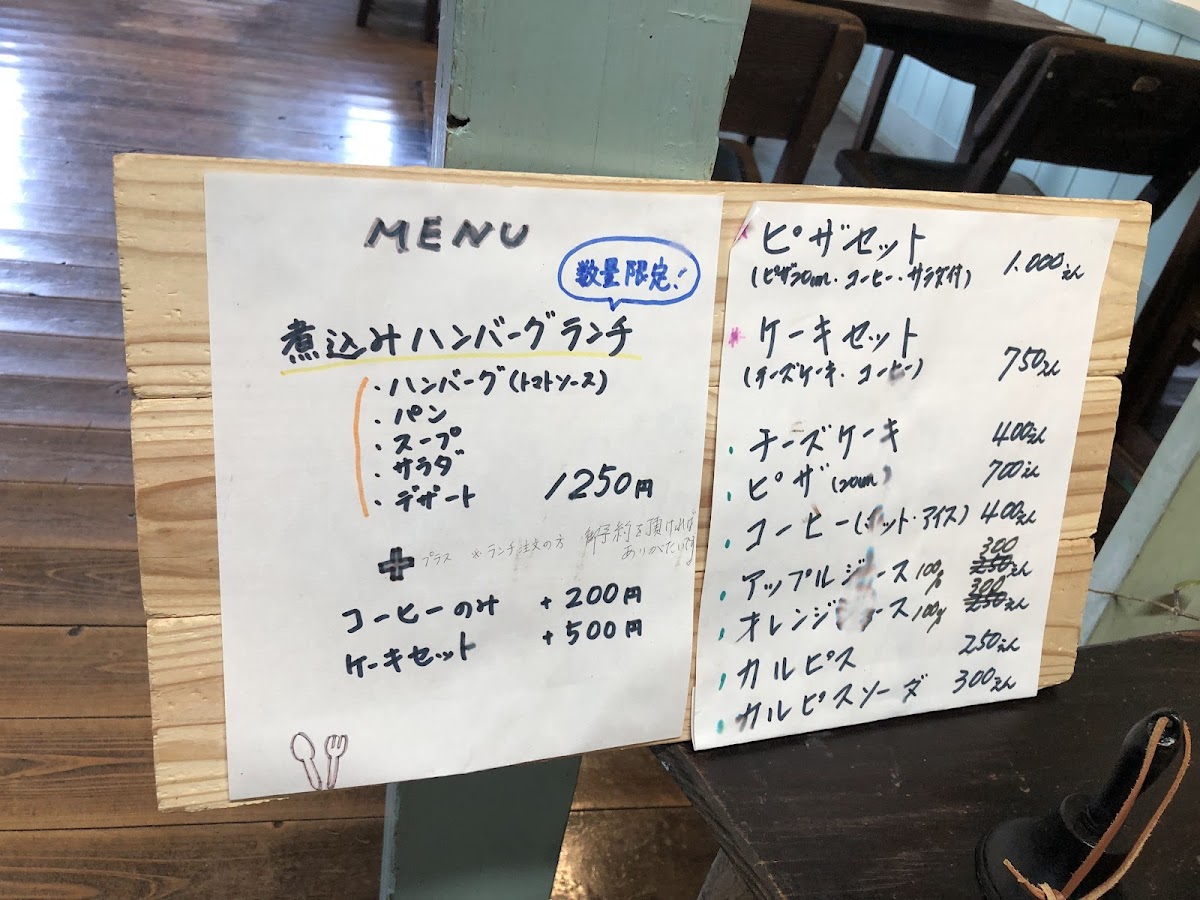 MENU
数量限定!
煮込みハンバーグランチ
・ハンバーグ(トマトソース)
・パン
・スープ
・サラダ
・デザート 1250円
+プラス ※ランチ注文の方 御予約を頂ければ
ありがたいです
コーヒーのみ +200円
ケーキセット +500円
*ピザセット 1.000えん
(ピザ20cm・コーヒー・サラダ付)
*ケーキセット 750えん
(チーズケーキ・コーヒー)
・チーズケーキ 400えん
・ピザ(20cm) 700えん
・コーヒー(ホット・アイス) 400えん
・アップルジュース100% 300 250えん
・オレンジジュース100% 300 250えん
・カルピス 250えん
・カルピスソーダ 300えん